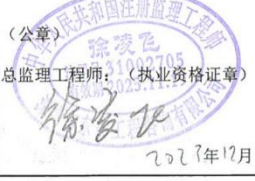 （公章）
中华人民共和国注册监理工程师
徐凌飞
31002705
总监理工程师：（执业资格证章）
徐凌飞
2023年12月